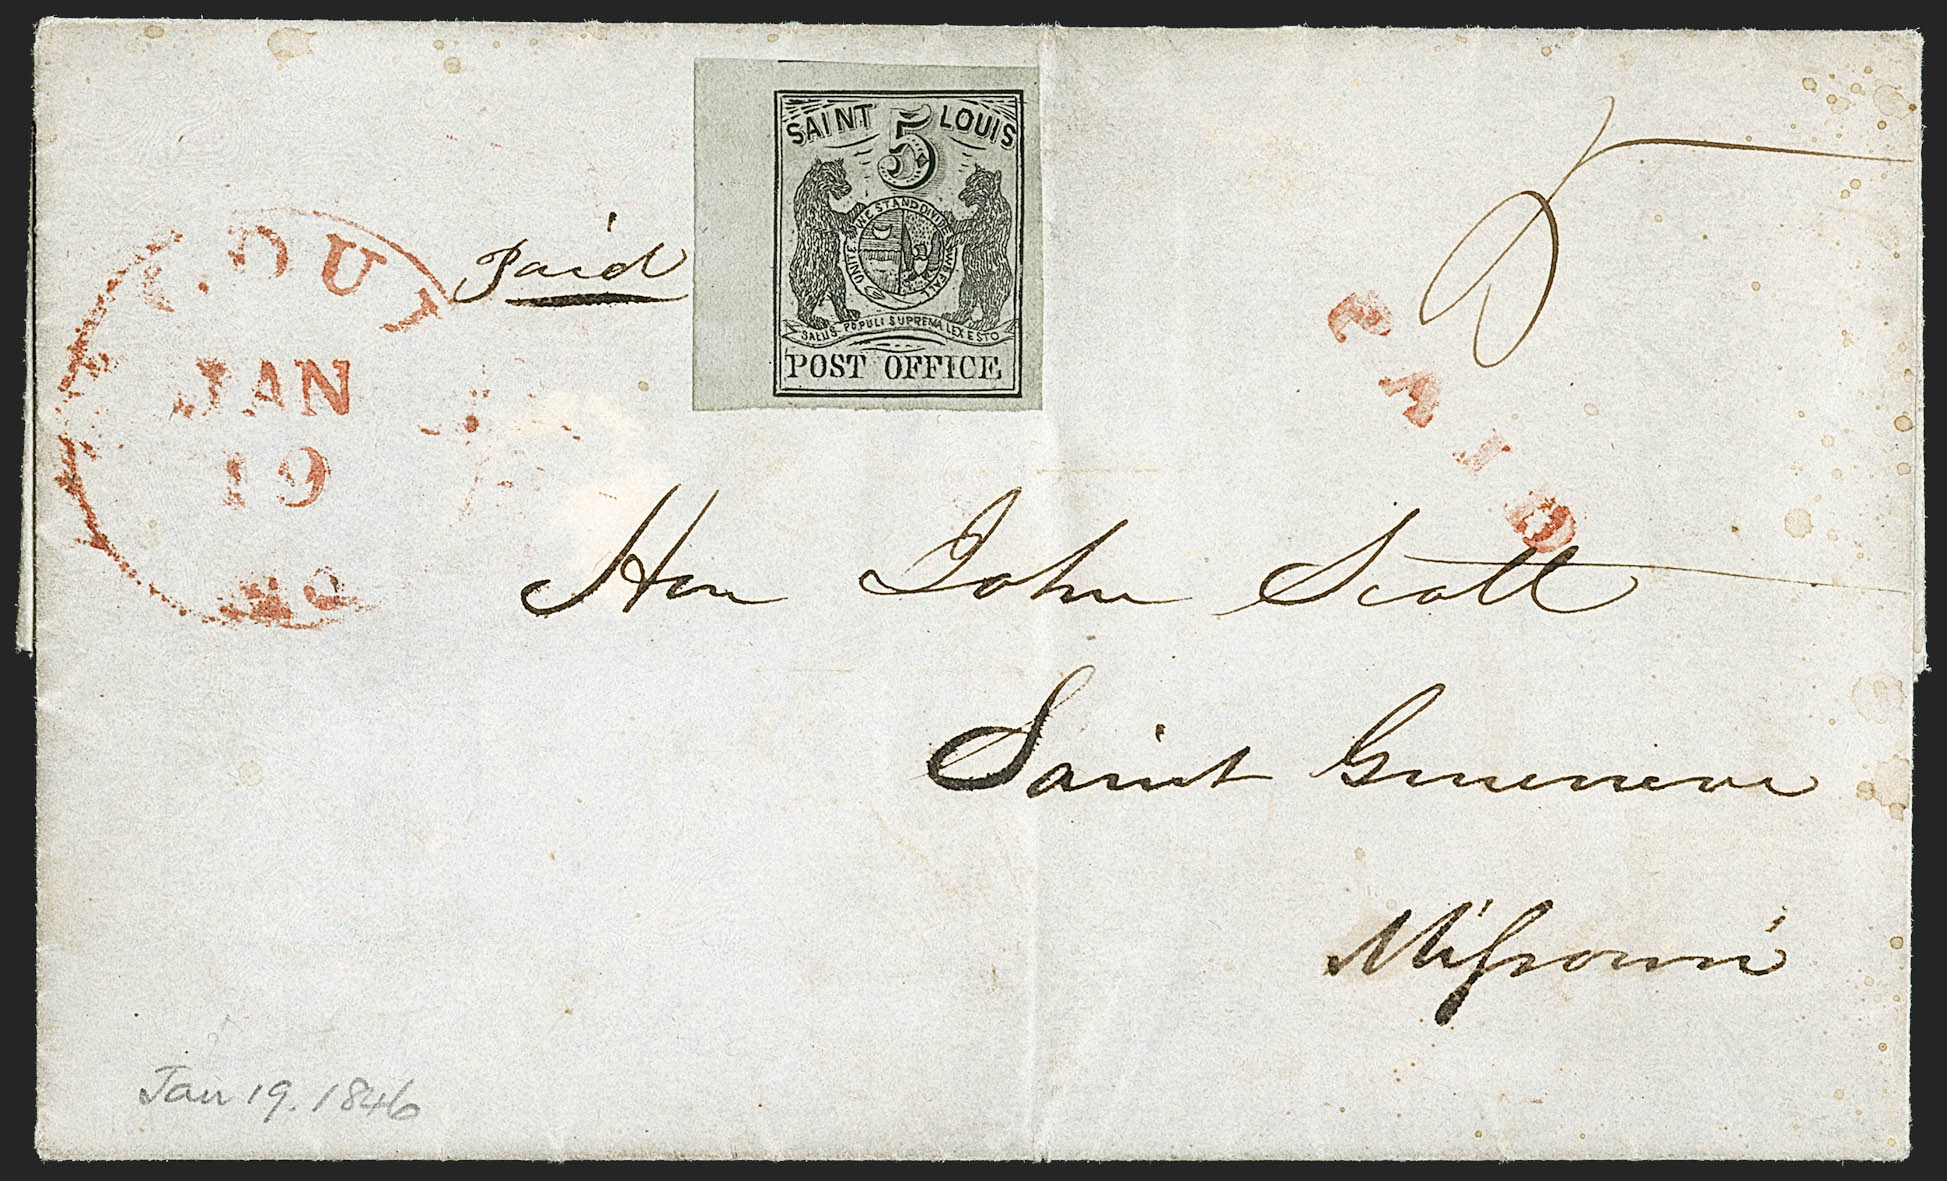 SAINT 5 LOUIS
UNITED WE STAND DIVIDED WE FALL
SALUS POPULI SUPREMA LEX ESTO
POST OFFICE
Paid
LOUI
JAN
19
MO
5
PAID
Hon John Scott
Saint Genevieve
Missouri
Jan 19. 1846